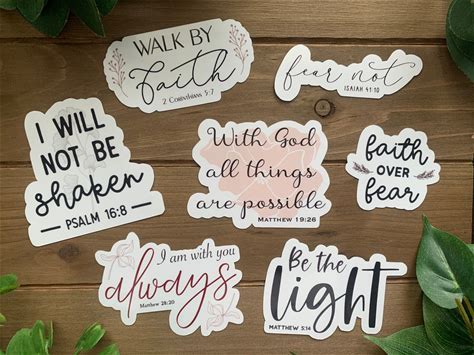 WALK BY
Faith
2 CORINTHIANS 5:7
fear not
ISAIAH 41:10
I WILL
NOT BE
shaken
PSALM 16:8
With God
all things
are possible
MATTHEW 19:26
faith
OVER
fear
I am with you
always
Matthew 28:20
Be the
light
MATTHEW 5:14